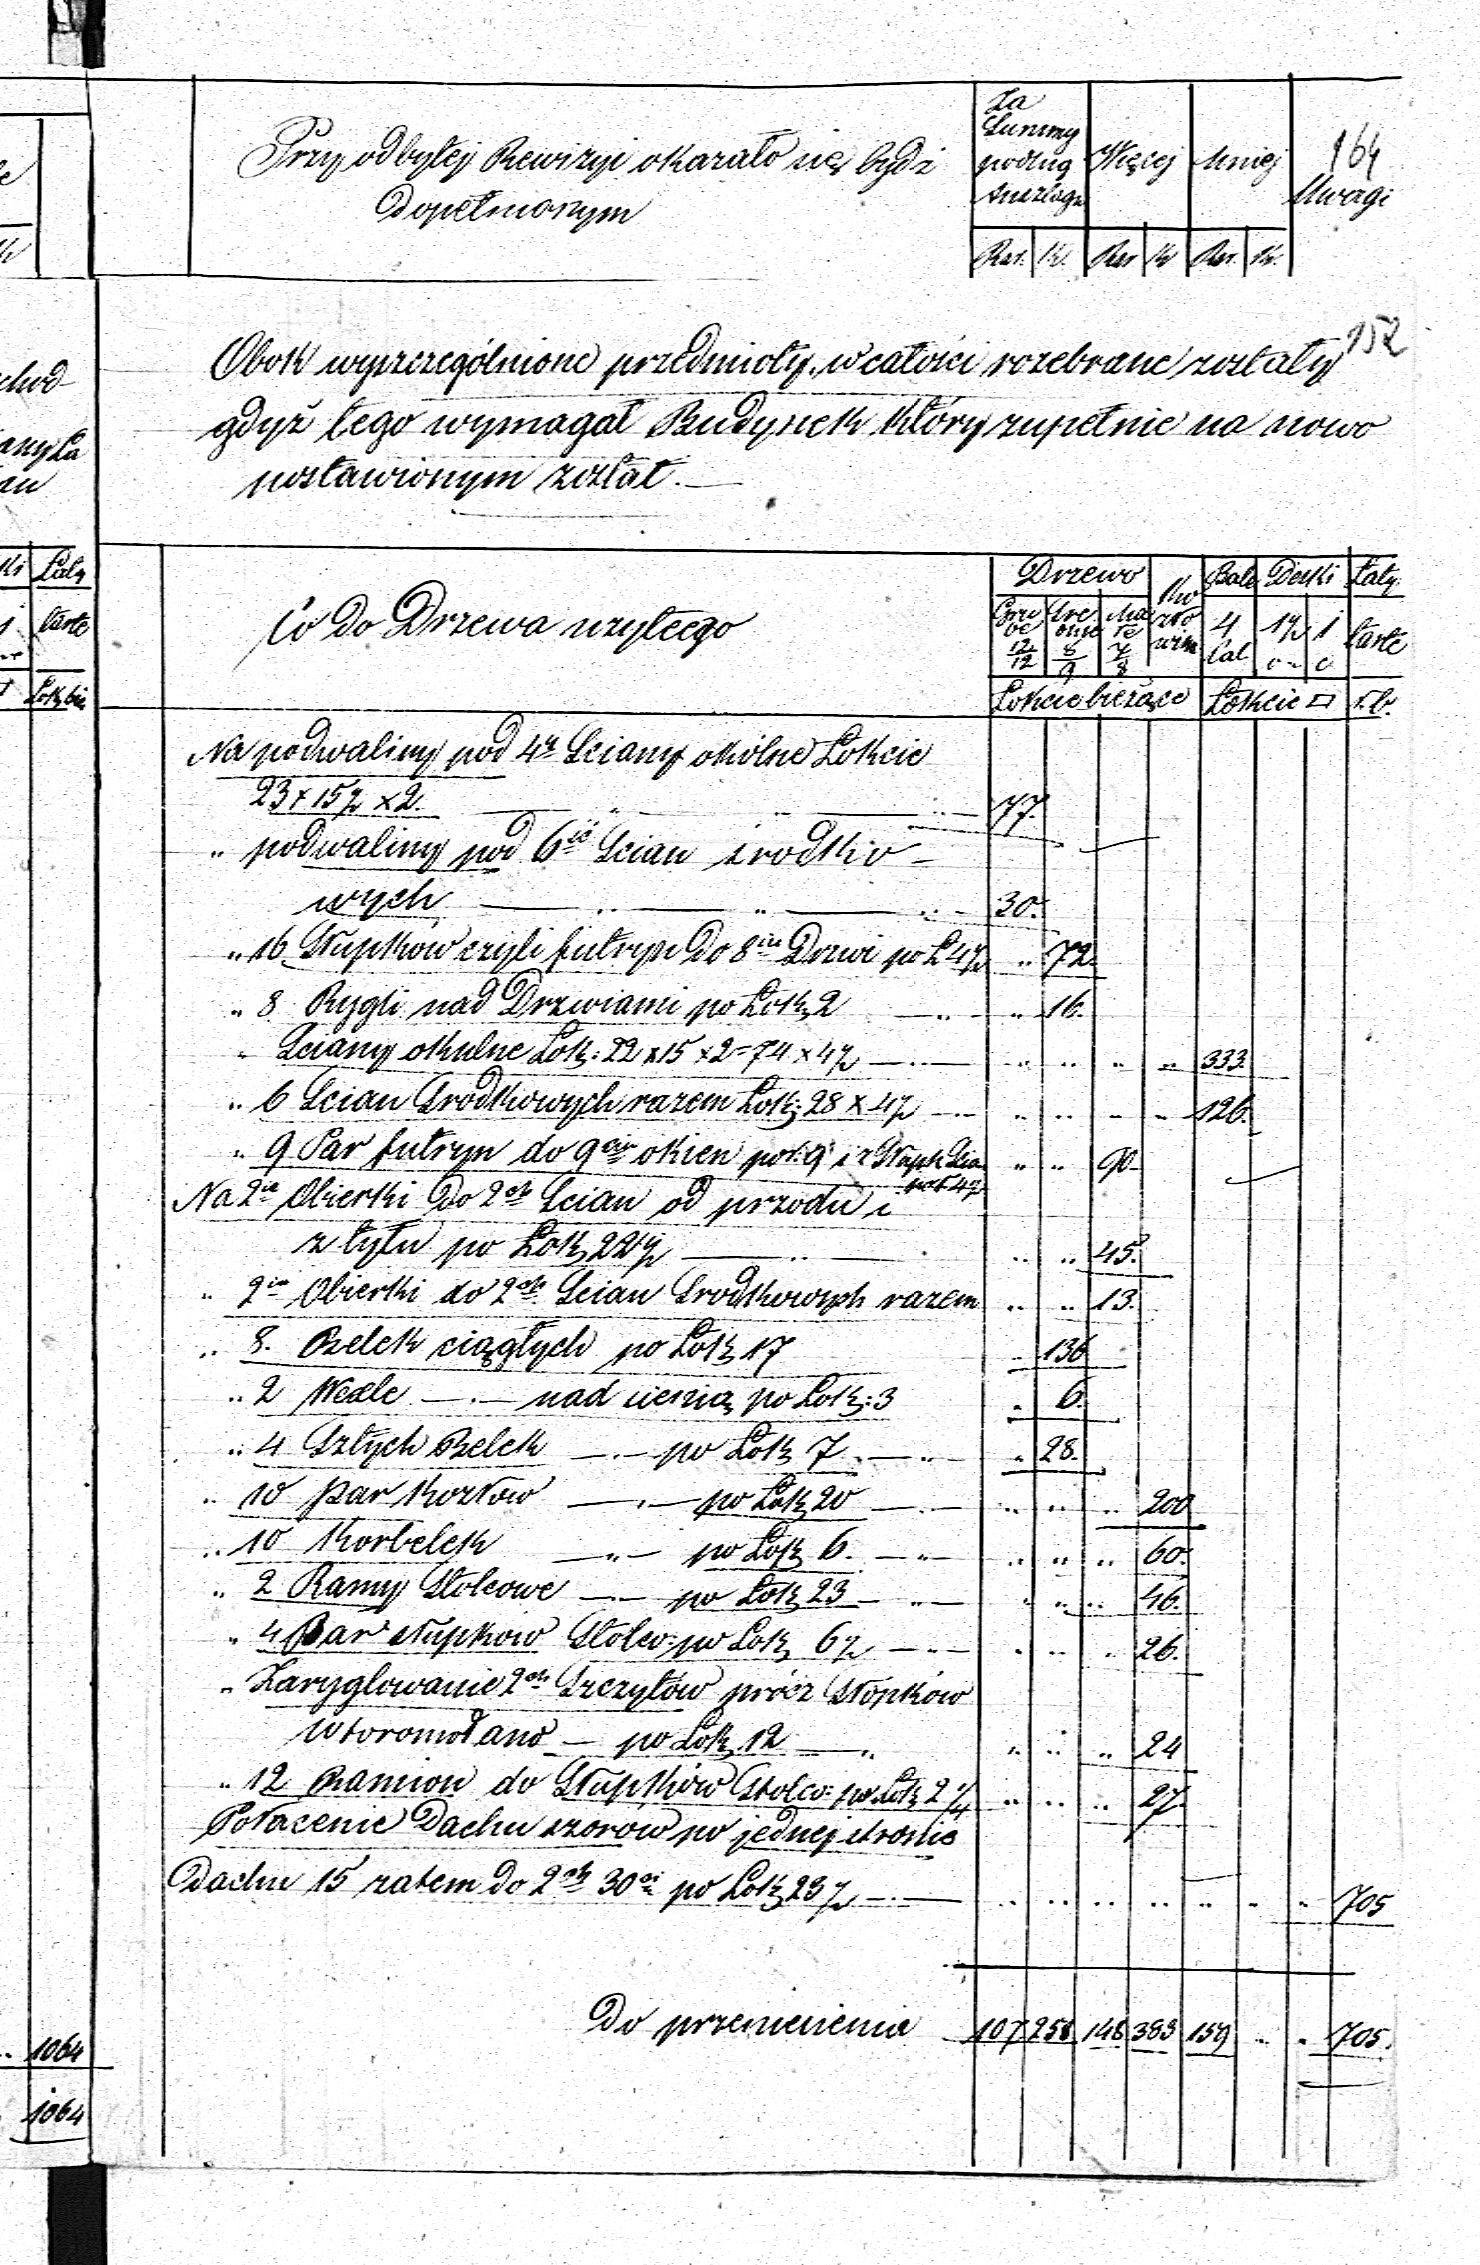 Przy odbytej Rewizyi okazało się bydź
dopełnionym
Za
Summy
podług
Anszlagu
Więcej
Mniej
164
Uwagi
Rsr. K. Rsr K Rsr. K.
152
Obok wyszczególnione przedmioty, w całości rozebrane zostały
gdyż tego wymagał Budynek który zupełnie na nowo
postawionym został. —
Co do Drzewa użytego
Drzewo
Bale Deski Łaty
4 Cal
1½ 1
tarte
12/12 8/9 7/8
Łokcie bieżące Łokcie □ Ł.b.
Na podwaliny pod 4ry Sciany okólne Łokcie
23 + 15½ × 2. — " — 77.
" podwaliny pod 6ić Scian srodko-
wych — " — " — 30.
" 16 Słupków czyli futryn do 8iu Drzwi po Ł 4½ " 72.
" 8 Rygli nad Drzwiami po Łok 2 — " — " 16.
" Sciany okulne Łok: 22 × 15 × 2 = 74 × 4½ — " — " " " " 333.
" 6 Scian Srodkowych razem Łok: 28 × 4½ — " " " " 126.
" 9 Par futryn do 9ciu okien po Ł. 9 i 2 Słupk Scia " " 90.
po Ł 4½
Na 2ie Obierki do 2ch Scian od przodu i
z tyłu po Łok 22½ — " — " " 45.
" 2ie Obierki do 2ch Scian Srodkowych razem " " 13.
" 8. Belek ciągłych po Łok 17 " 136
" 2 Wexle — " — nad sienią po Łok: 3 " 6.
" 4 Sztych Belek — " — po Łok 7 — " " 28.
" 10 par Kozłow — " — po Łok 20 — " " " 200
" 10 Korbelek — " — po Łok 6. — " " " " 60.
" 2 Ramy Stolcowe — " — po Łok 23 — " — " " " 46.
" 4 Par słupkow Stolco: po Łok 6½ — " — " " " 26.
" Zaryglowanie 2ch Szczytów prócz Słopków
— po Łok 12 — " " " " 24
" 12 Ramion do Słupków Stolco: po Łok 2¼ " " " 27.
Połacenie Dachu szorów po jednej stronie
Dachu 15 zatem do 2ch 30ci po Łok 23½ — " — " " " " " " " 705
Do przeniesienia 107 258 148 383 159 " " 705.
Łaty
tarte
1064
1064